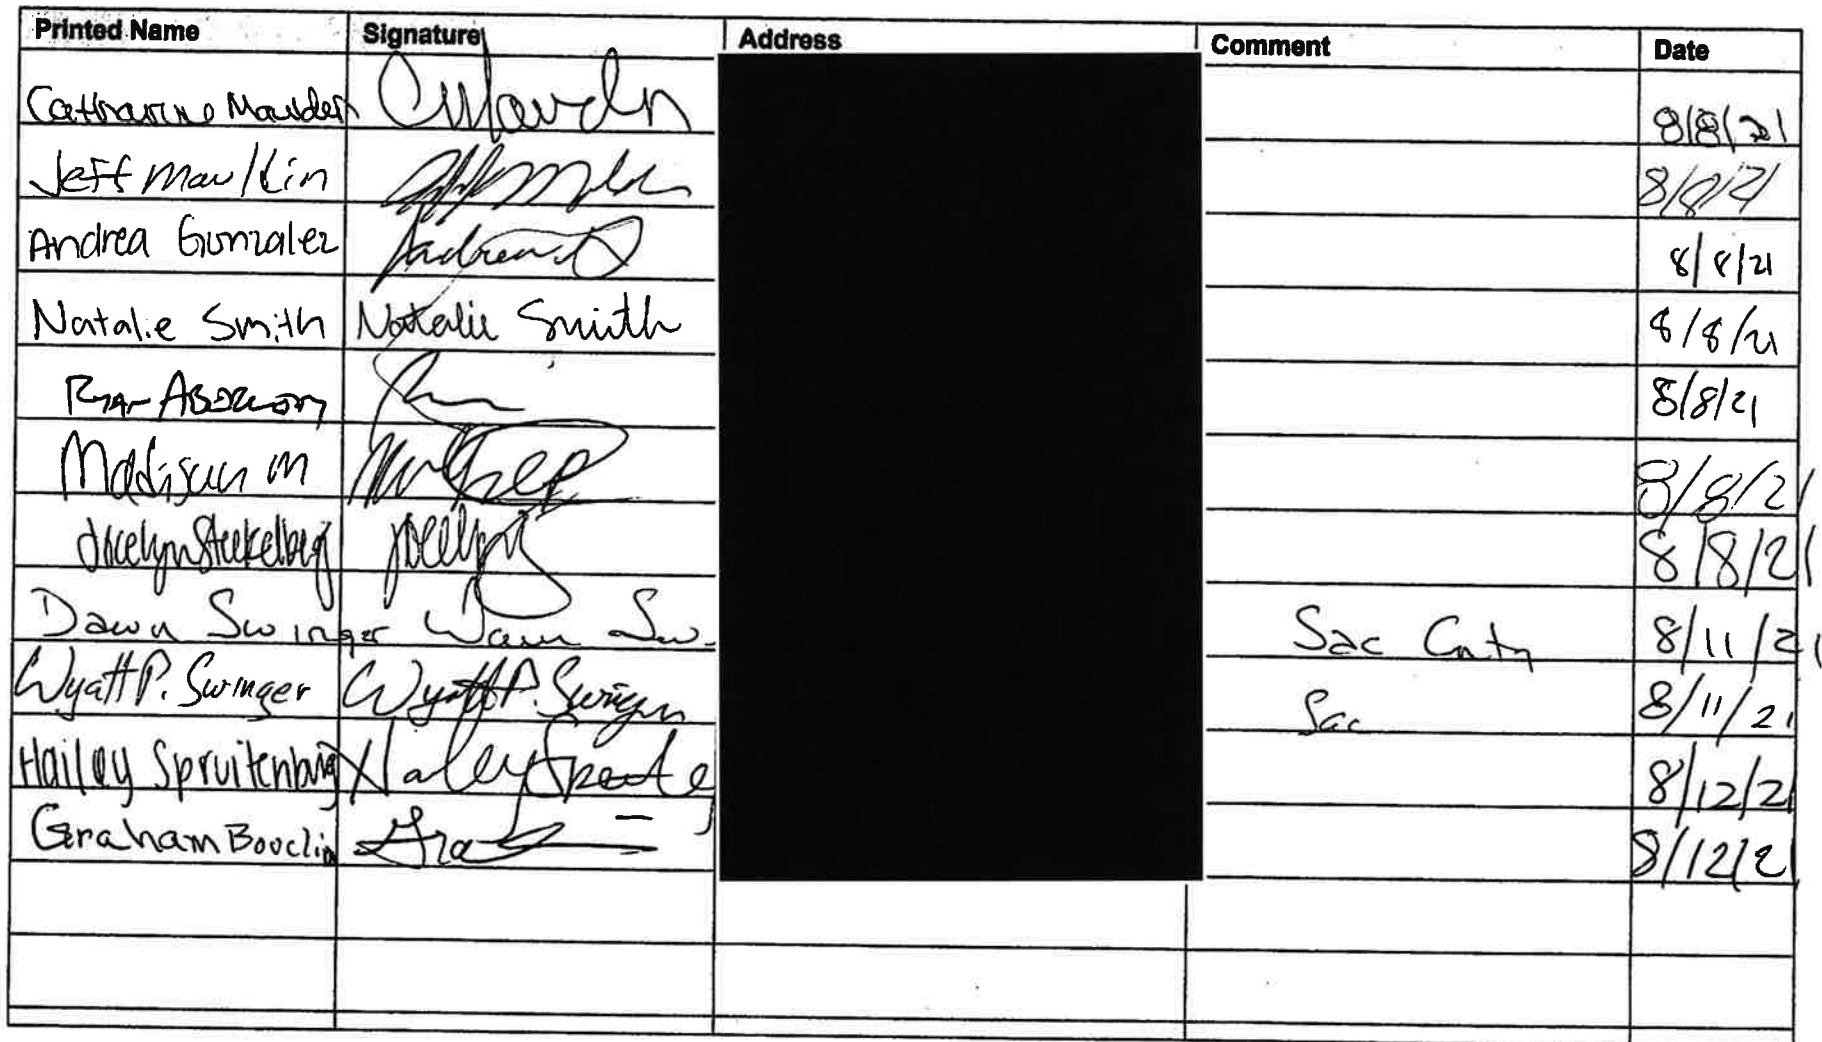 Printed Name Signature Address Comment Date
Catharine Maulden CMaulden 8/8/21
Jeff Mauldin 8/8/21
Andrea Gonzalez Andrea G 8/8/21
Natalie Smith Natalie Smith 8/8/21
Ryan 8/8/21
Madison M 8/8/21
Jocelyn Steekelberg Jocelyn 8/8/21
Dawn Swinger Dawn Sw. Sac Cnty 8/11/21
Wyatt P. Swinger Wyatt P. Swinger Sac 8/11/21
Hailey Spruitenburg 8/12/21
Graham Bouclin Gra 8/12/21